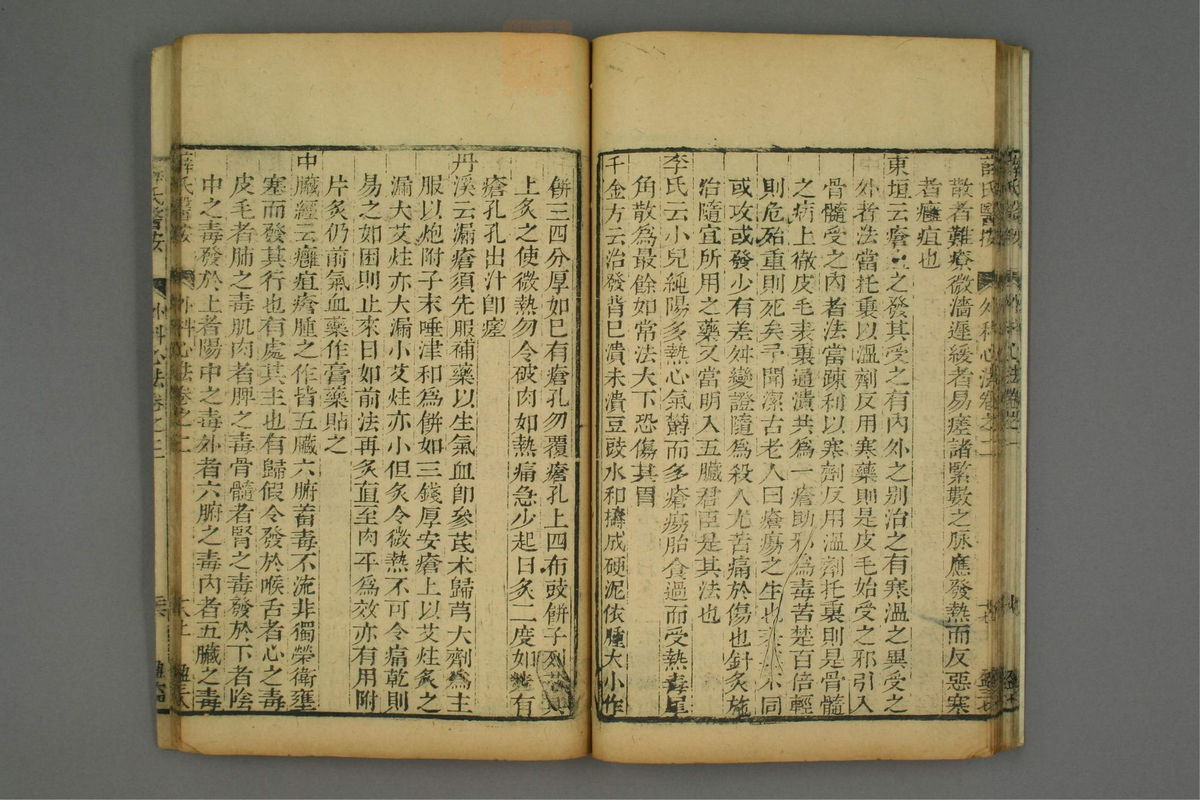 薛氏醫按 外科心法卷之二
散者難瘵微濇遲緩者易瘥諸緊數之脉應發熱而反惡寒
者癰疽也
東垣云瘡之發其受之有內外之别治之有寒溫之異受之
外者法當托裏以溫劑反用寒藥則是皮毛始受之邪引入
骨髓受之內者法當疎利以寒劑反用溫劑托裏則是骨髓
之病上徹皮毛表裏通潰共爲一瘡助邪爲毒苦楚百倍輕
則危殆重則死矣予聞潔古老人曰瘡瘍之生也不同
或攻或發少有差舛變證隨爲殺人尤苦痛於傷也針灸施
治隨宜所用之藥又當明入五臟君臣是其法也
李氏云小兒純陽多熱心氣鬱而多瘡瘍胎食過而受熱毒犀
角散爲最餘如常法大下恐傷其胃
千金方云治發背已潰未潰豆豉水和擣成硬泥依腫大小作
餅三四分厚如已有瘡孔勿覆瘡孔上四布豉餅子列艾其
上灸之使微熱勿令破肉如熱痛急少起日灸二度如先有
瘡孔孔出汁卽瘥
丹溪云漏瘡須先服補藥以生氣血卽參芪朮歸芎大劑爲主
服以炮附子末唾津和爲餅如三錢厚安瘡上以艾炷灸之
漏大艾炷亦大漏小艾炷亦小但灸令微熱不可令痛乾則
易之如困則止來日如前法再灸直至肉平爲效亦有用附
片灸仍前氣血藥作膏藥貼之
中臟經云癰疽瘡腫之作皆五臟六腑蓄毒不流非獨榮衛壅
塞而發其行也有處其主也有歸假令發於喉舌者心之毒
皮毛者肺之毒肌肉者脾之毒骨髓者腎之毒發於下者陰
中之毒發於上者陽中之毒外者六腑之毒內者五臟之毒
薛氏醫按 外科心法卷之二